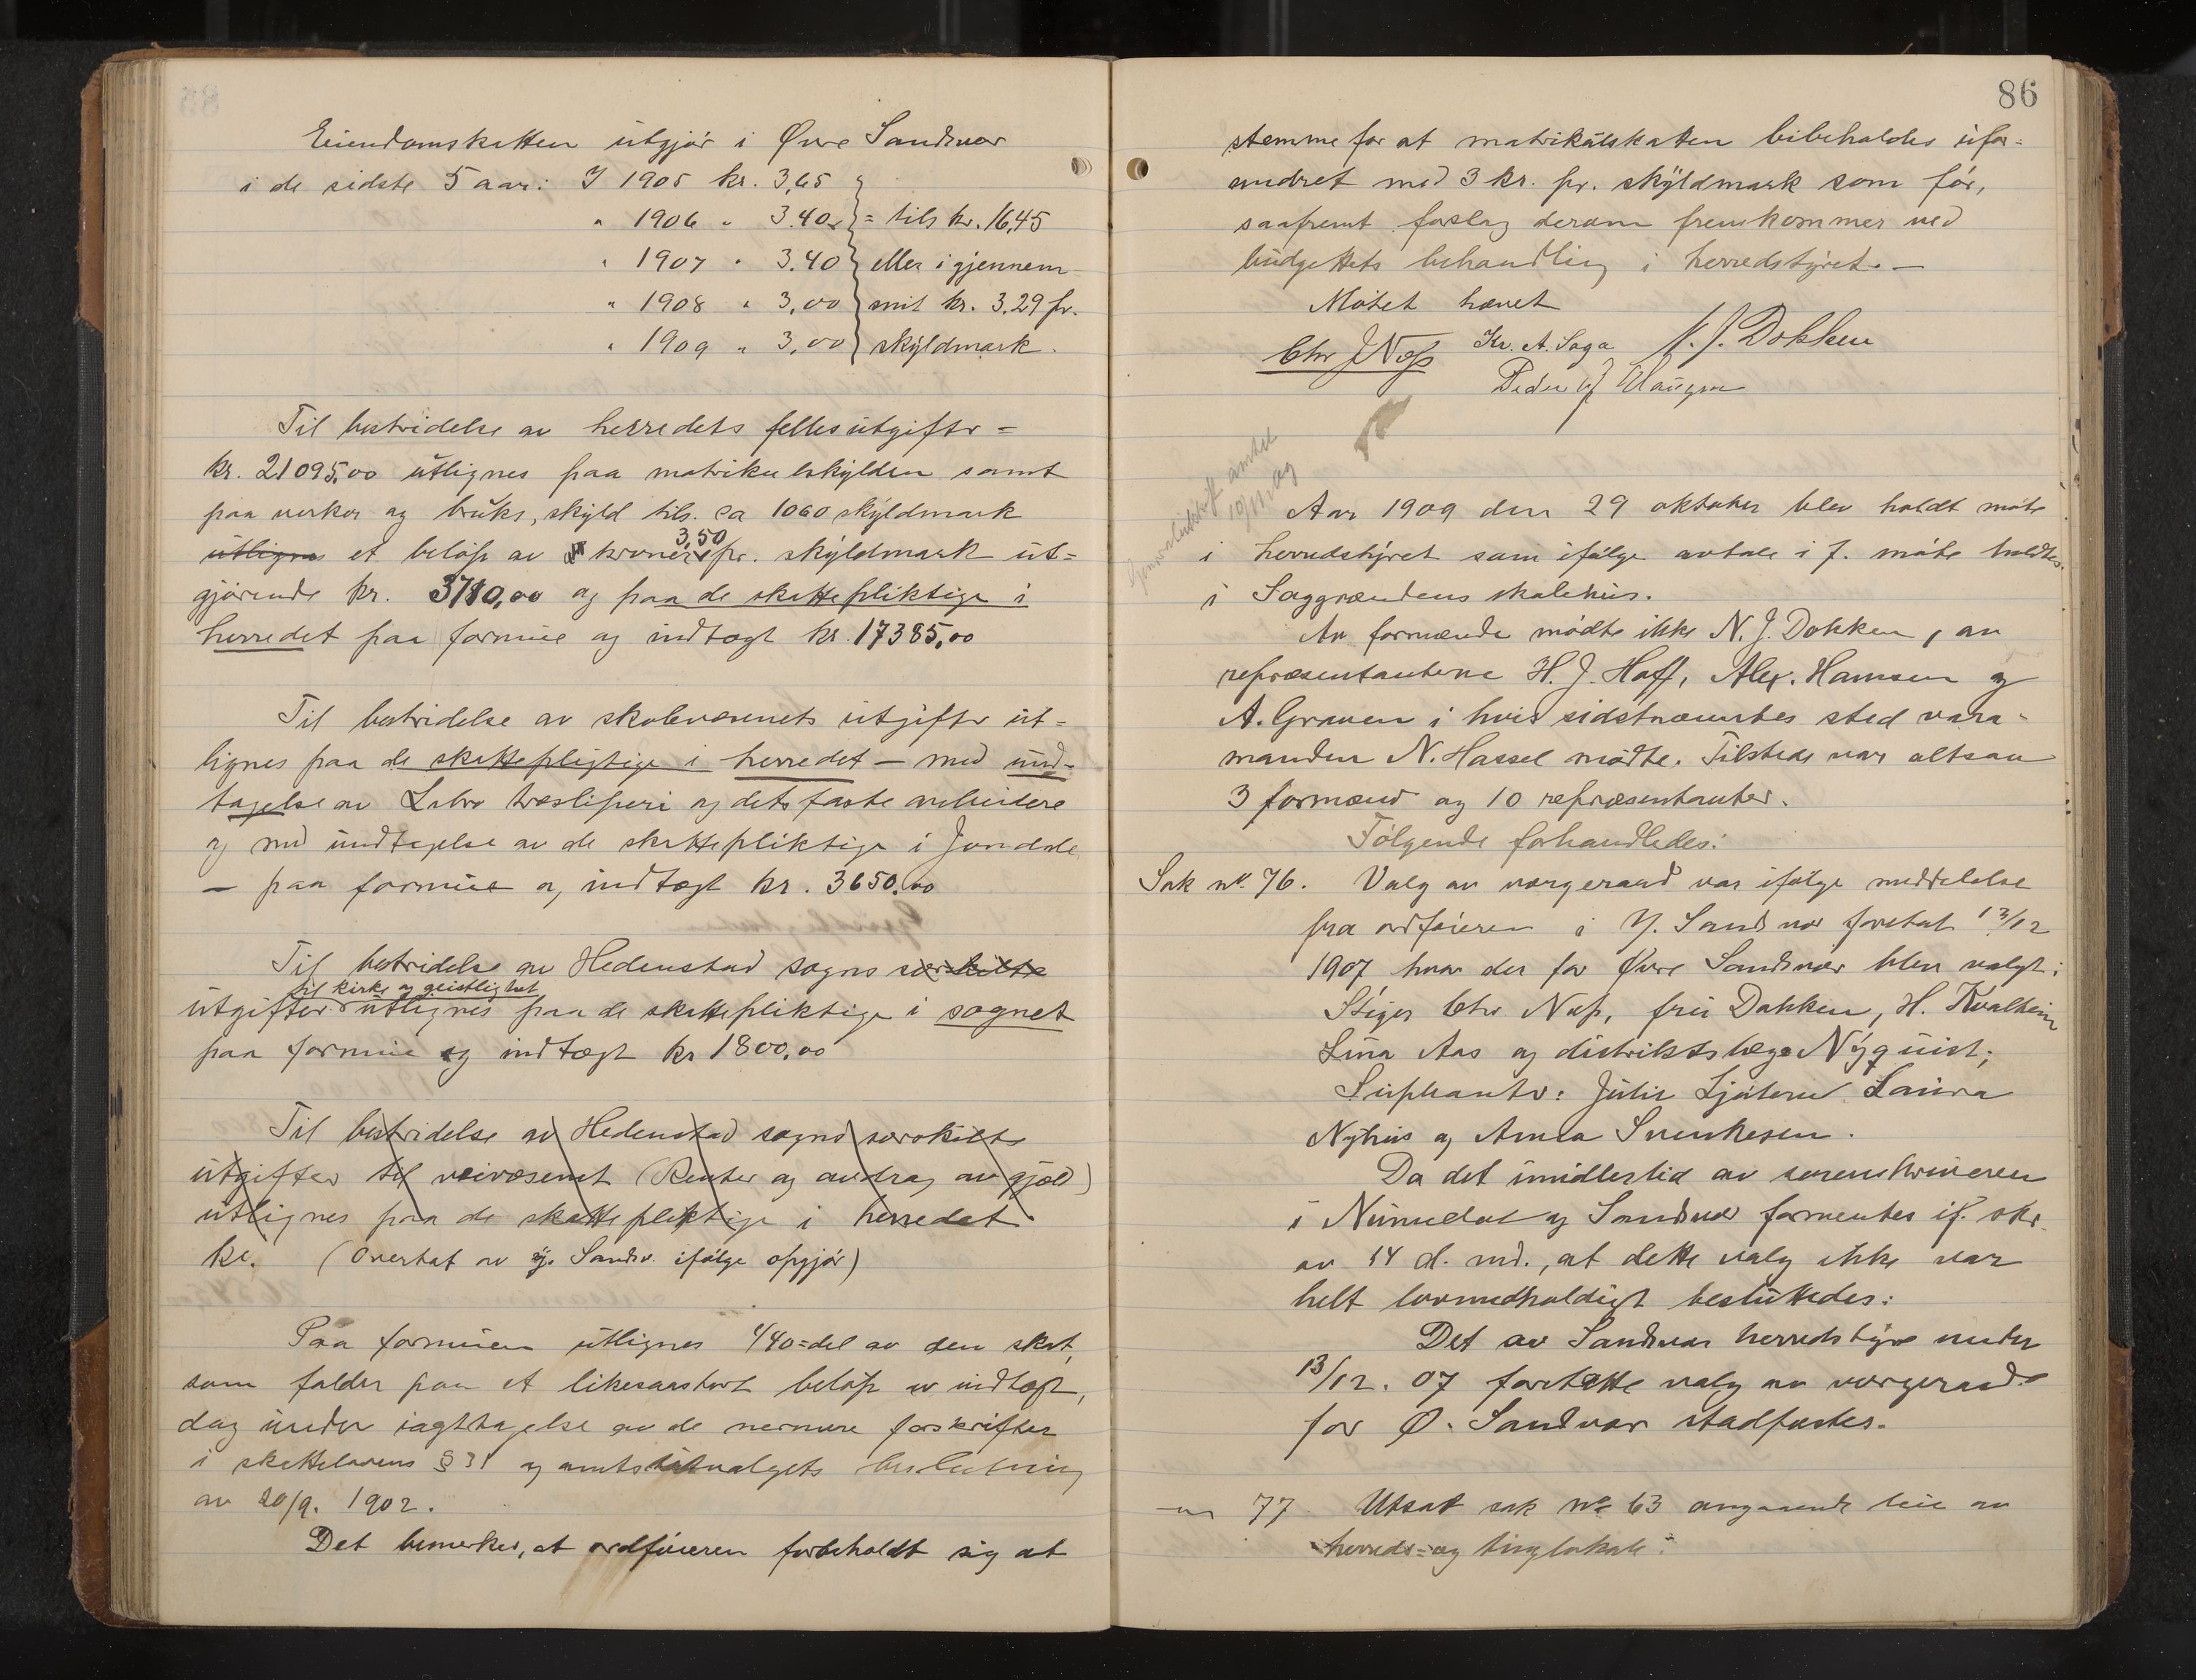 Eiendomskatten utgjør i Øvre Sandsvær
i de sidste 5 aar: I 1905 kr. 3,65
" 1906 " 3.40 = tils kr. 16,45
" 1907 " 3.40 eller i gjennem
" 1908 " 3,00 snit kr. 3.29 pr.
" 1909 " 3,00 skyldmark.
Til bestridelse av herredets fellesutgifter =
kr. 21095,00 utlignes paa matrikulskylden samt
paa verker og bruks, skyld tils. ca 1060 skyldmark
utlignes et beløp av kroner 3,50 pr. skyldmark ut=
gjørende kr. 3710,00 og paa de skattepliktige i
herredet paa formue og indtægt kr. 17385,00
Til bestridelse av skolevæsenets utgifter ut=
lignes paa de skattepligtige i herredet – med und-
tagelse av Labro træsliperi og dets faste arbeidere
og med undtagelse av de skattepliktige i Jondale
– paa formue og indtægt kr. 3650.00
Til bestridelse av Hedenstad sogns særskilte
utgifter til kirke og geistlighet utlignes paa de skattepliktige i sognet
paa formue og indtægt kr 1800,00
Til bestridelse av Hedenstad sogns særskilte
utgifter til veivæsenet (Renter og avdrag av gjæld)
utlignes paa de skattepliktige i herredet
kr. (Overtat av y. Sandsv. ifølge opgjør)
Paa formuen utlignes 1/40=del av den skat,
som falder paa et likesaastort beløp av indtægt,
dog under iagttagelse av de nærmere forskrifter
i skattelovens § 31 og amtsutvalgets beslutning
av 20/9. 1902.
Det bemerkes, at ordføreren forbeholdt sig at
86
stemme for at matrikulskatten bibeholdes ufor=
andret med 3 kr. pr. skyldmark som før,
saafremt forslag derom fremkommer ved
budgettets behandling i herredstyret. –
Møtet hævet
Chr J Næss Kr. A. Saga N. J. Dokken
Peder J Haugen
Aar 1909 den 29 oktober blev holdt møte
i herredstyret som ifølge avtale i f. møte holdtes
i Saggrændens skolehus.
Av formænde mødte ikke N. J. Dokken, av
repræsentanterne H. J. Hoff, Alex. Hansen og
A. Graven i hvis sidstnævntes sted vara-
manden N. Hassel mødte. Tilstede var altsaa
3 formænd og 10 repræsentanter.
Følgende forhandledes:
Sak no. 76. Valg av værgeraad var ifølge meddelelse
fra ordføreren i Y. Sandsvær foretat 13/12
1907, hvor der for Øvre Sandsvær blev valgt:
Stiger Chr Næss, fru Dokken, H. Kvalheim
Lina Aas og distriktslæge Nyquist;
Supleanter: Julie Laura
Nyhus og Anna Svenkesen.
Da det imidlertid av sorenskriveren
i Numedal og Sandsvær formentes if. skr.
av 14 d. md., at dette valg ikke var
helt lovmedholdigt besluttedes:
Det av Sandsvær herredstyre under
13/12. 07 foretatte valg av værgeraad
for Ø. Sandsvær stadfæstes.
77. Utsat sak no 63 angaaende leie av
herreds- og tinglokale: